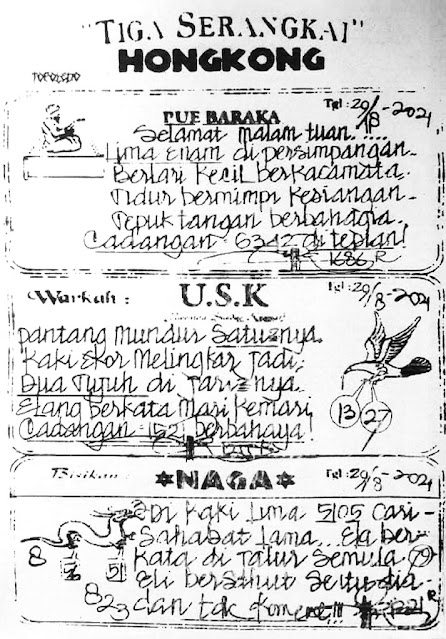 "TIGA SERANGKAI"
HONGKONG
TOPOLEDO
Tgl : 20/8 - 2021
PUE BARAKA
Selamat malam tuan.....
Lima Enam di persimpangan-
Berlari kecil berkacamata.
Tidur bermimpi kesiangan-
Tepuk tangan berbahagia..
Cadangan - 6342 di teplan!
Warkah :
U.S.K
Tgl : 20/8 - 2021
pantang mundur satu2nya.
kaki Ekor Melingkar Jadi;
Dua Tujuh di Tari2nya.
Elang berkata Mari Kemari
Cadangan - 152 berbahaya!
13
27
Bisikan :
NAGA
Tgl : 20/8 - 2021
Di kaki Lima 5105 Cari-
Sahabat Lama.. Ela ber-
kata di Jalur Semula (79)
Eli bersahut Setuju dia-
dan tak komen!!!
8
51
823